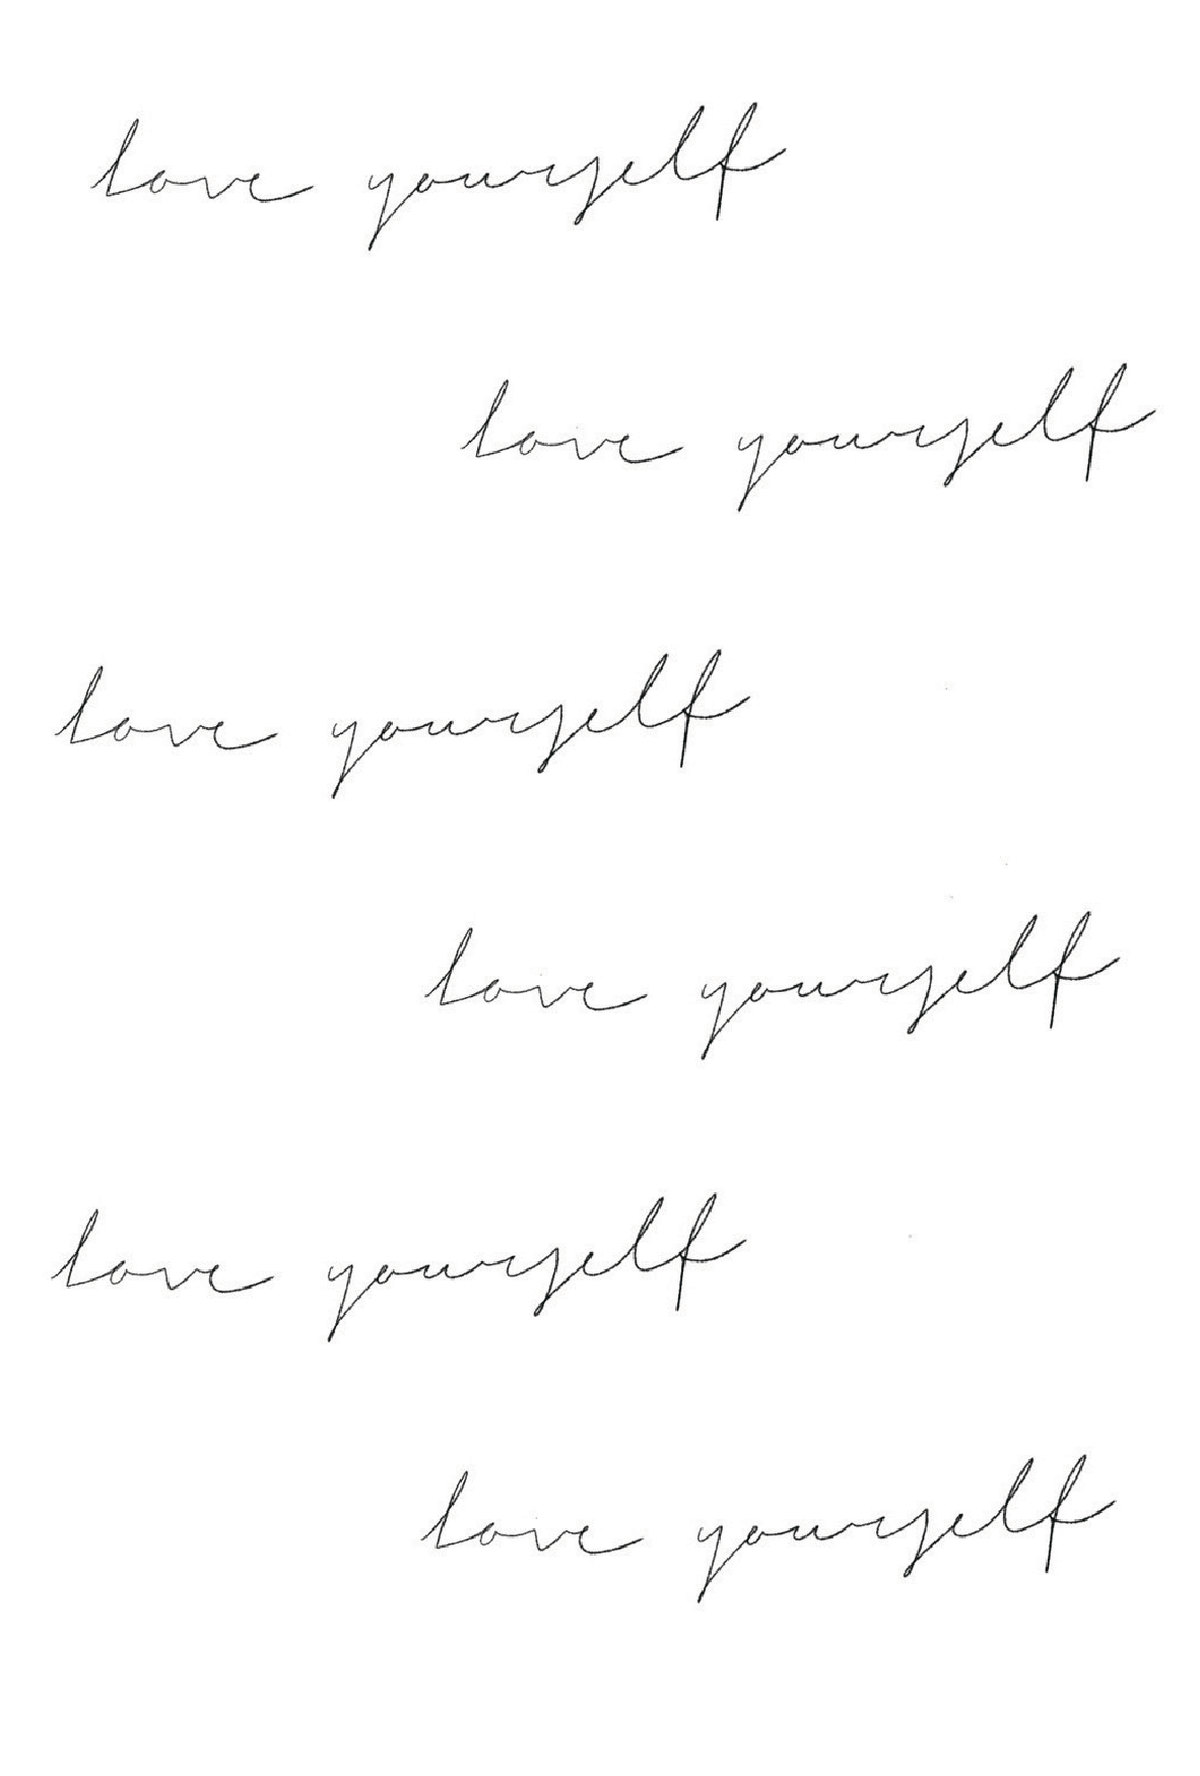 love yourself
love yourself
love yourself
love yourself
love yourself
love yourself